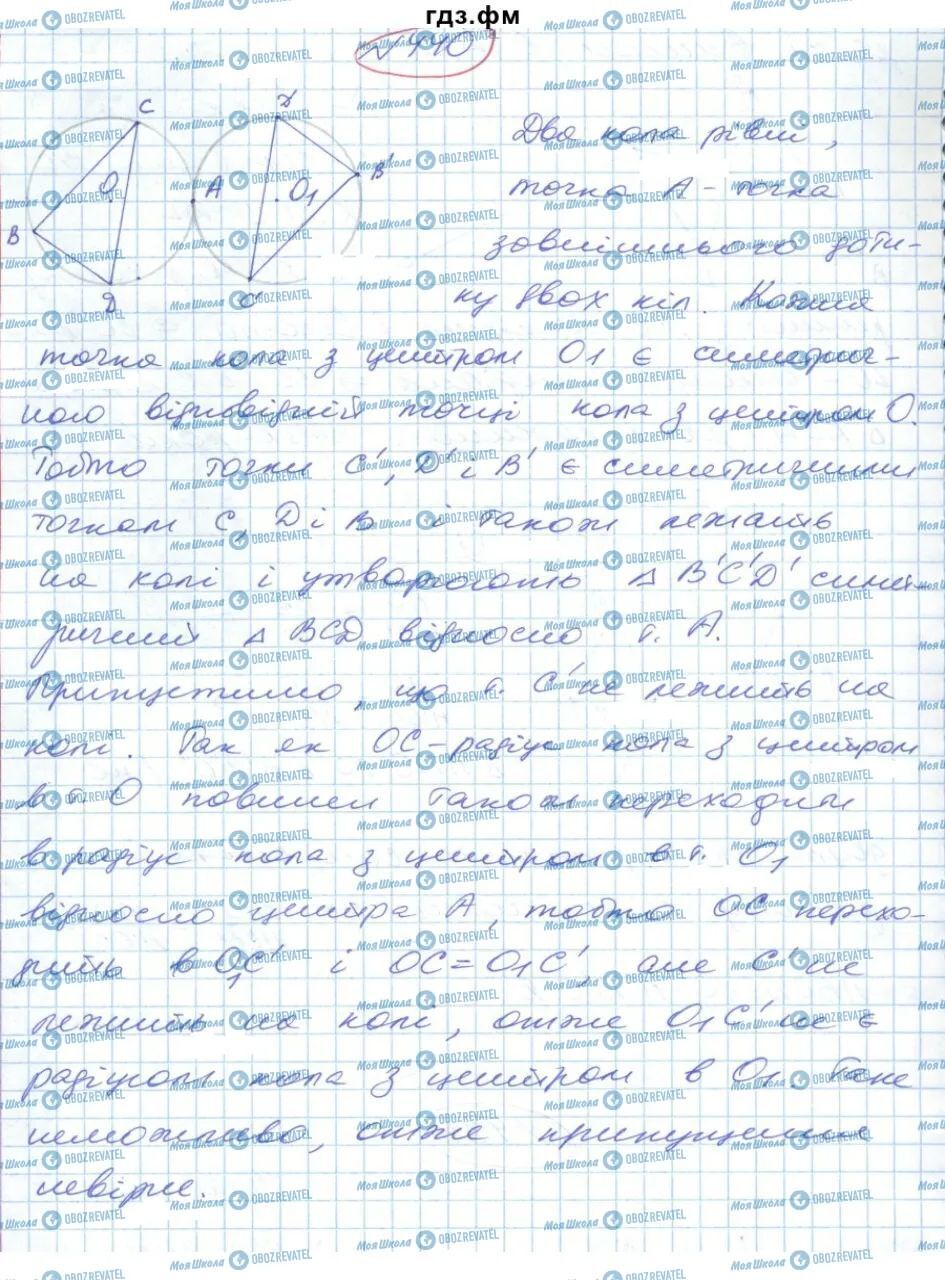 гдз.фм
№ 440
C
D'
O
A
O1
B'
B
D
C'
Два кола рівні,
точка А - точка
зовнішнього доти-
ку двох кіл. Кожна
точка кола з центром О1 є симетрич-
ною відповідній точці кола з центром О.
Тобто точки C', D' і B' є симетричними
точкам C, D і B і також лежать
на колі і утворюють △ B'C'D' симет-
ричний △ BCD відносно т. А.
Припустимо, що т. C' не лежить на
колі. Так як OC - радіус кола з центром
в т. О повинен також переходити
в радіус кола з центром в т. О1
відносно центра А, тобто OC перехо-
дить в O1C' і OC = O1C', але C' не
лежить на колі, отже O1C' не є
радіусом кола з центром в О1. Таке
неможливо, отже припущення
невірне.
МояШкола OBOZREVATEL